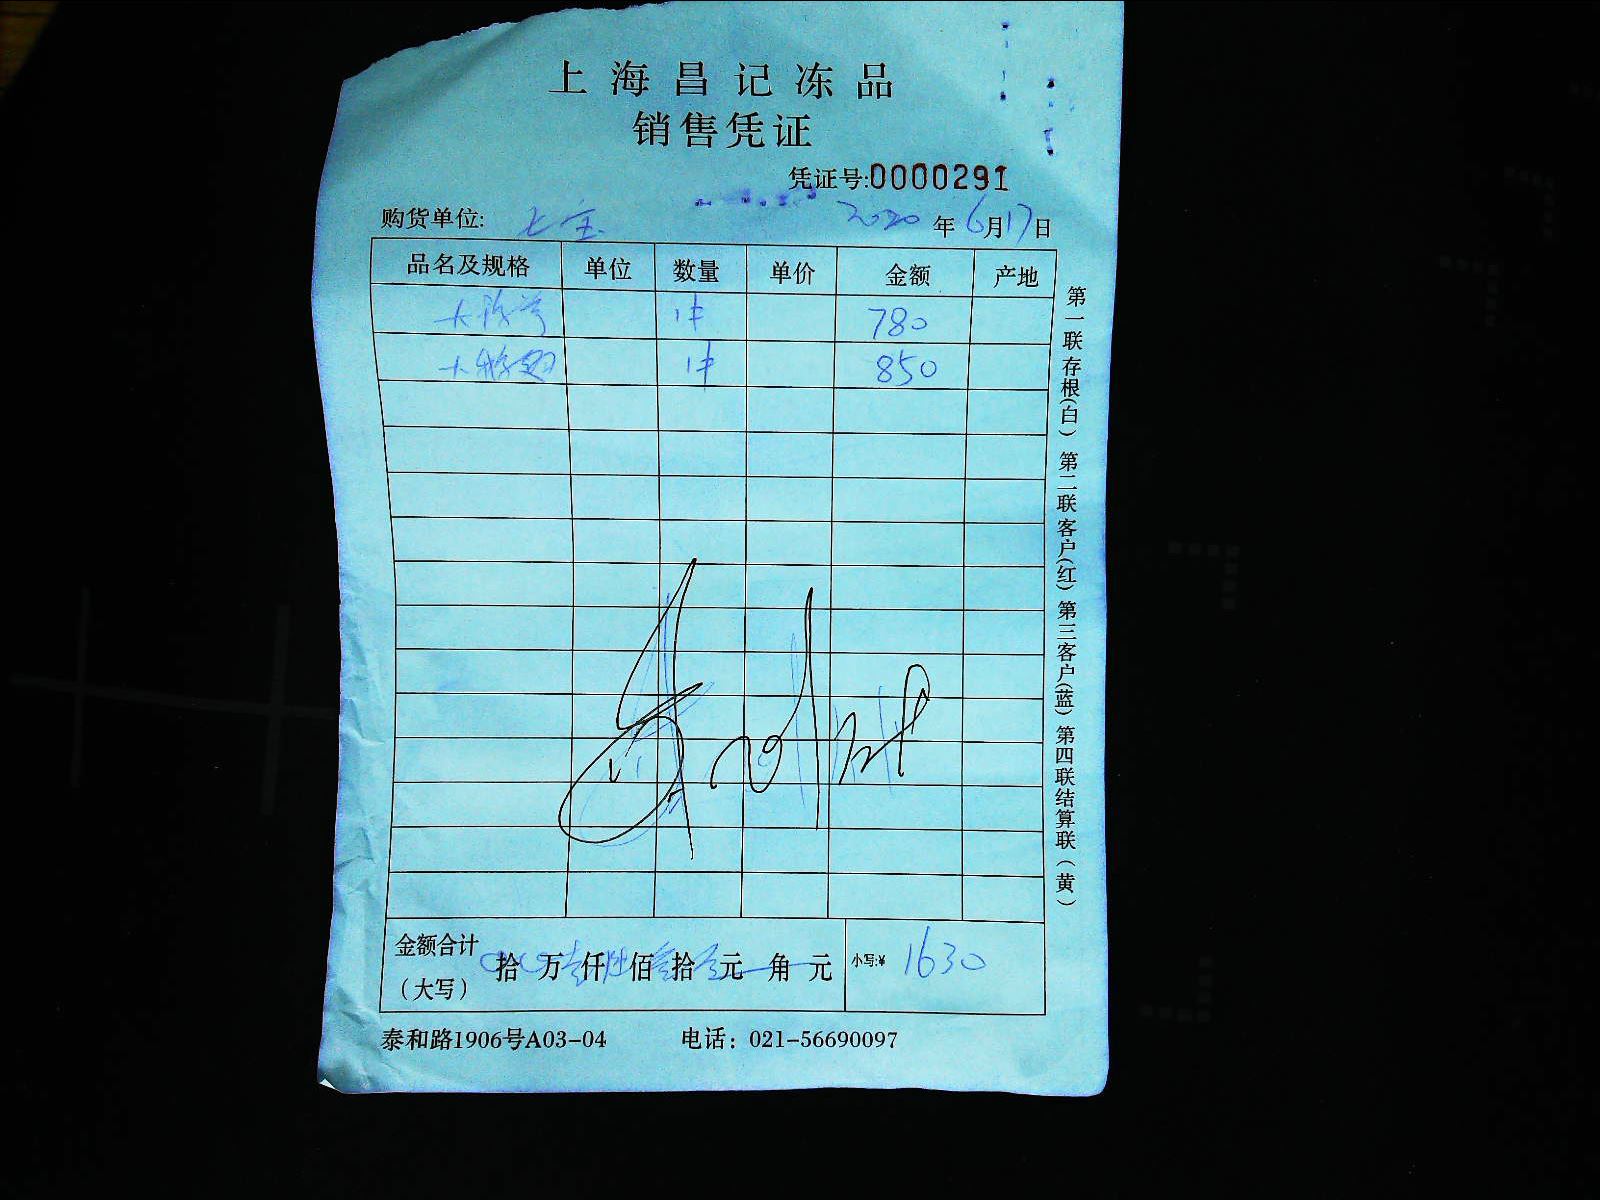 上海昌记冻品
销售凭证
凭证号:0000291
购货单位: 七宝 2020年6月17日
品名及规格 单位 数量 单价 金额 产地
1件 780
1件 850
金额合计(大写) 拾万壹仟陆佰叁拾元角元 小写:¥ 1630
泰和路1906号A03-04 电话：021-56690097
第一联存根(白) 第二联客户(红) 第三客户(蓝) 第四联结算联(黄)